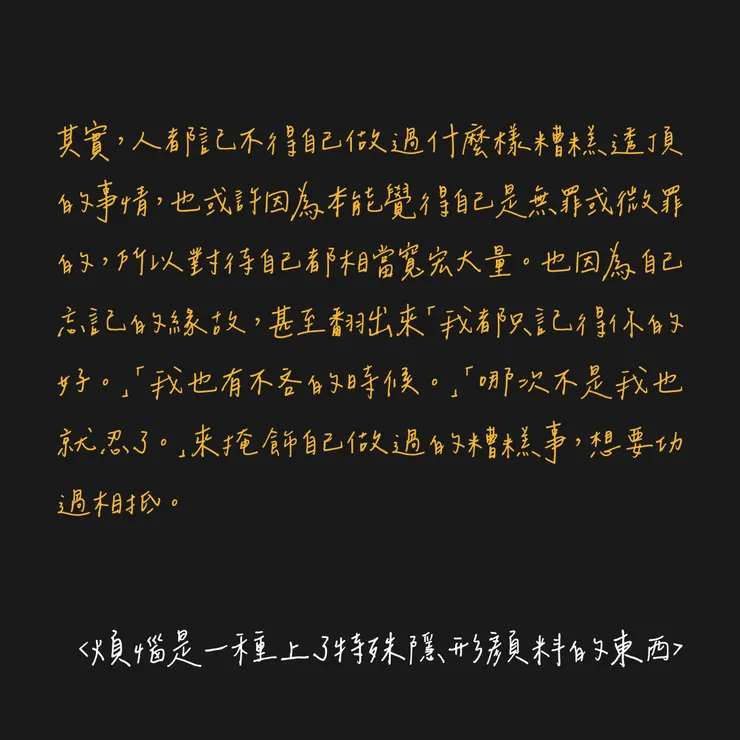 其實,人都記不得自己做過什麼樣糟糕透頂
的事情,也或許因為本能覺得自己是無罪或微罪
的,所以對待自己都相當寬宏大量。也因為自己
忘記的緣故,甚至翻出來「我都只記得你的
好。」「我也有不吝的時候。」「哪次不是我也
就忍了。」來掩飾自己做過的糟糕事,想要功
過相抵。
<煩惱是一種上了特殊隱形顏料的東西>